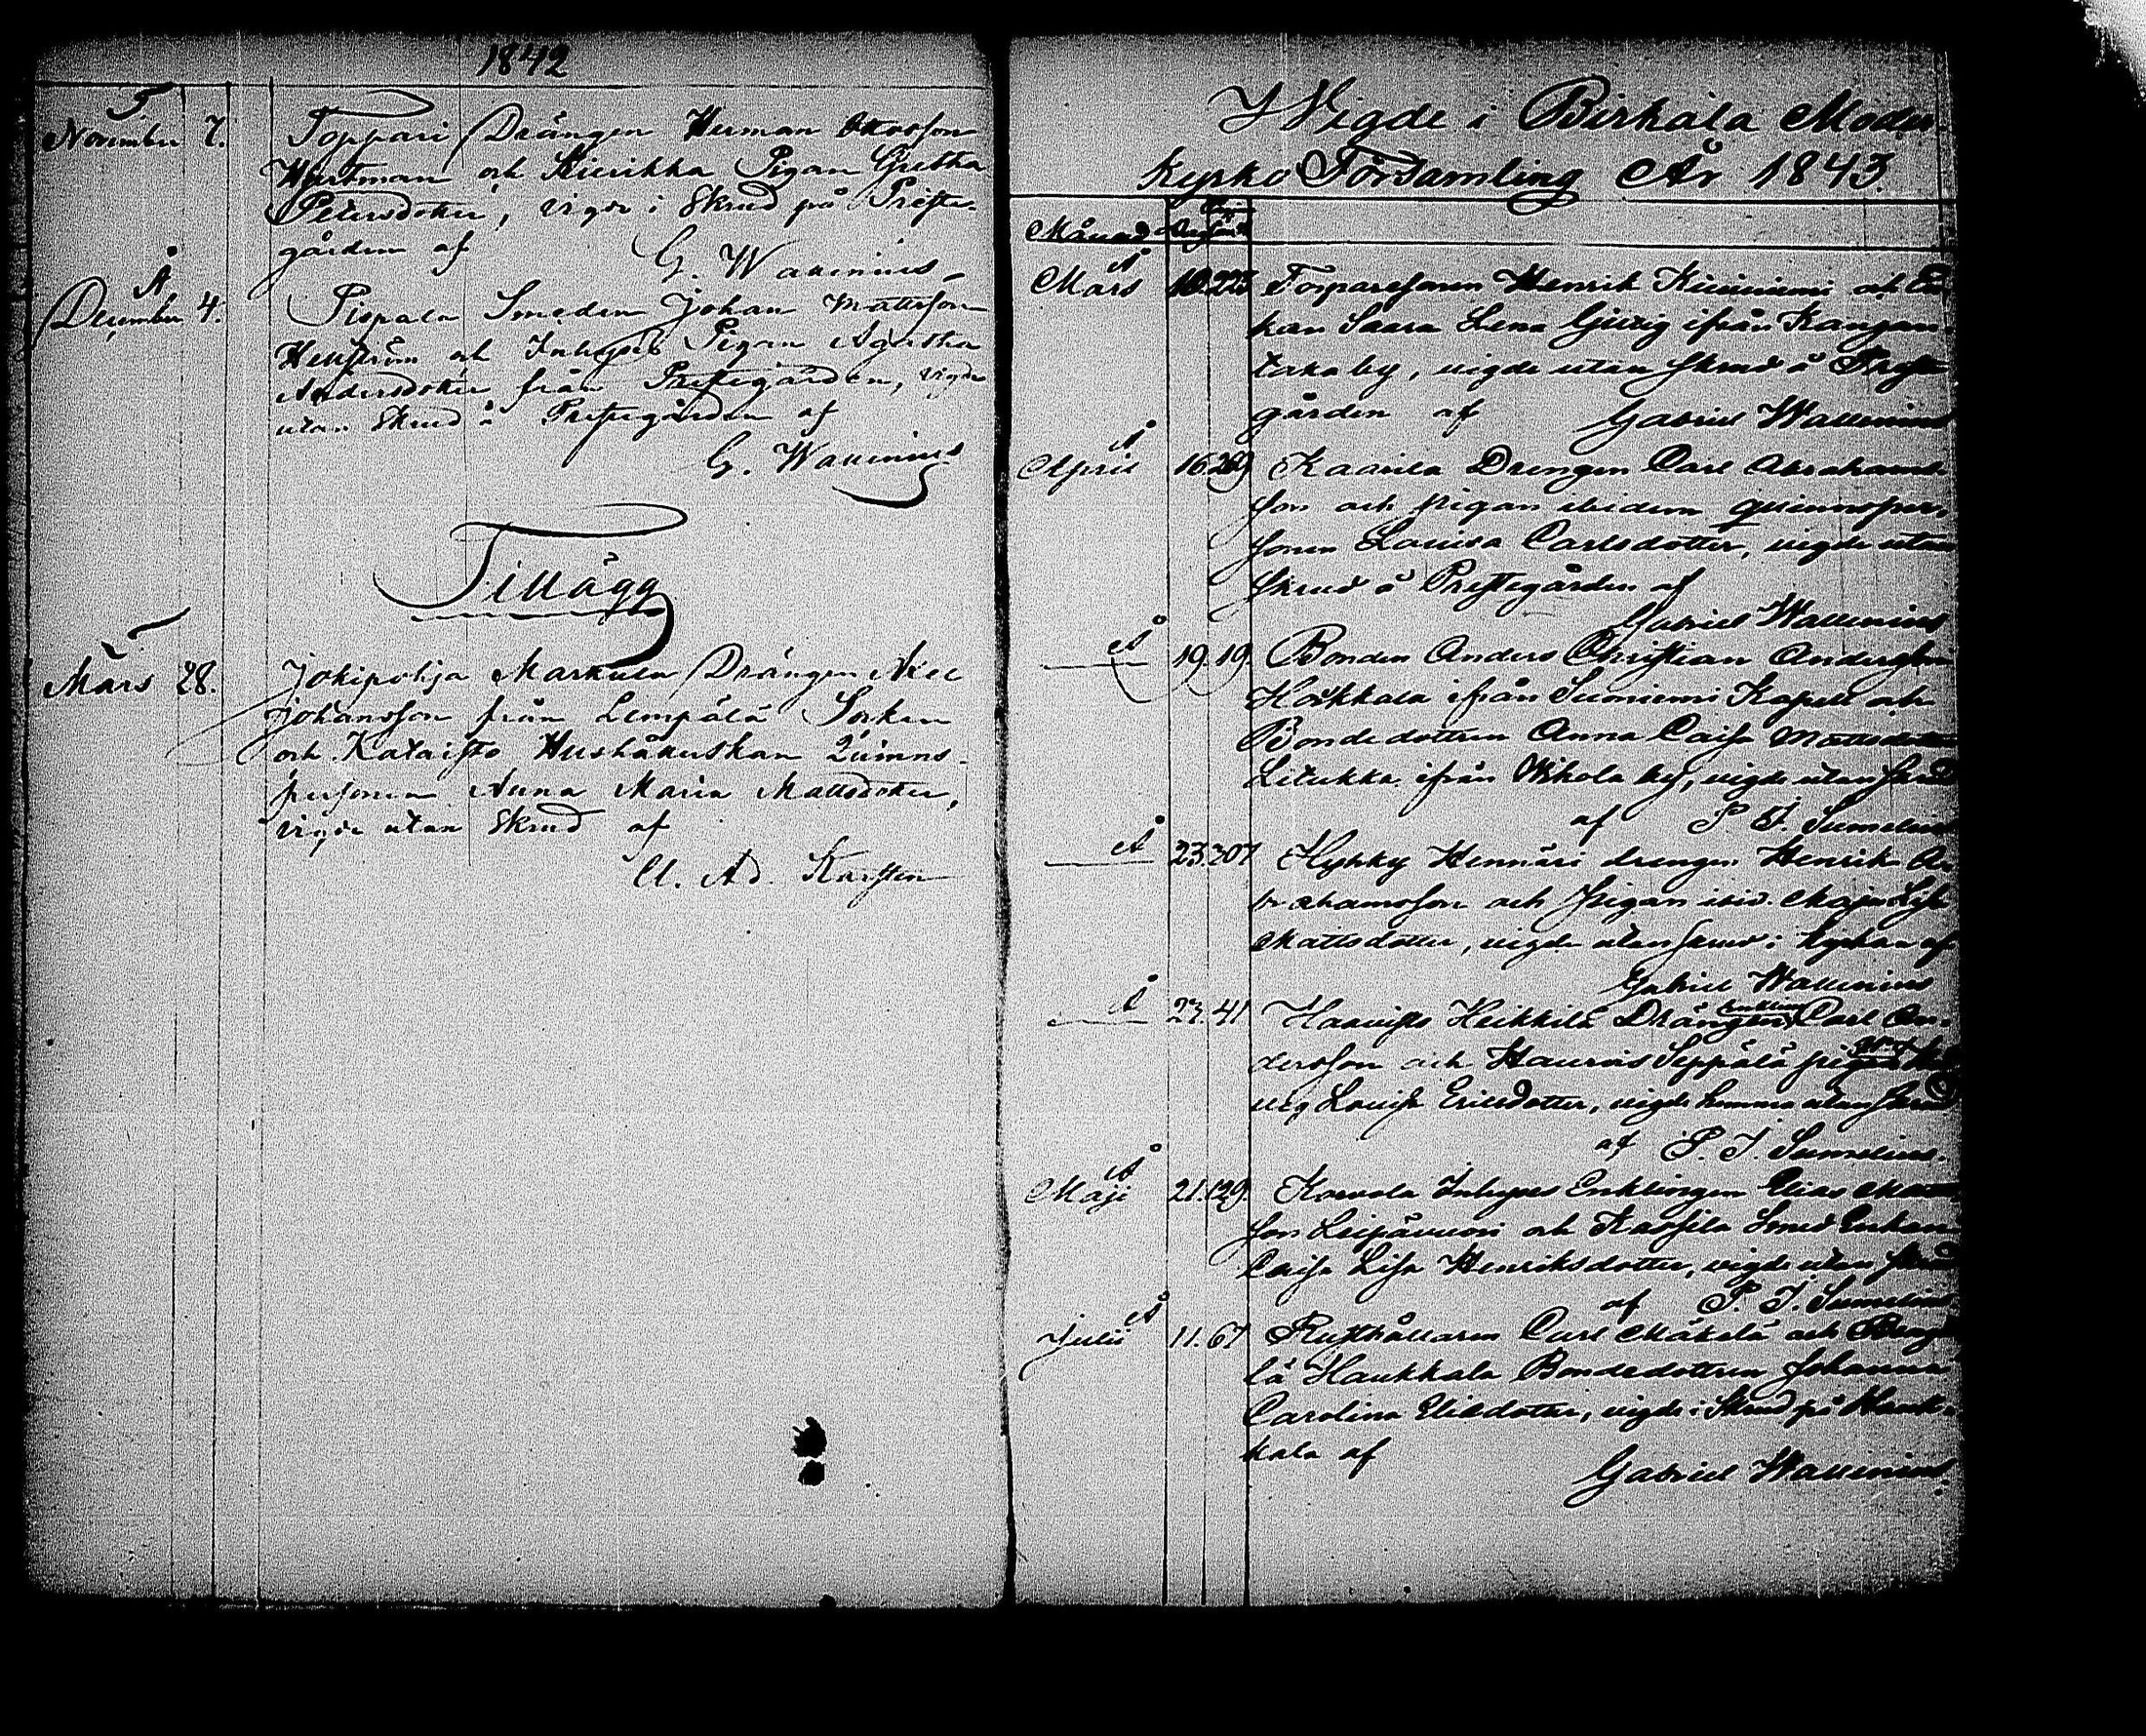 1842
November 7. Toppari Drängen Herman Ottosson
Wertman och Kierikka Pigan Gretha
Petersdotter, vigde i Skrud på Preste-
gården af
G. Wallenius
December 4. Pispala Smeden Johan Mattsson
Hellström och Inhyses Pigan Agatha
Andersdotter från Prestegården, vigde
utan Skrud å Prestegården af
G. Wallenius
Tillägg
Mars 28. Jokipohja Markula Drängen Axel
Johansson från Lempälä Socken
och Kataisto Hushållerskan Quinns-
personen Anna Maria Mattsdotter,
vigde utan Skrud af
C. Ad. Karsten
Vigde i Birkala Moder
kyrko Församling År 1843.
Månad
Mars Torparesonen Henrik Kiviniemi och
Saara Lena ifrån Kangan-
taka by, vigde utan skrud å Preste-
gården af Gabriel Wallenius
April 16. Kaarila Drengen Carl Abrahams-
son och pigan ibidem quinnsper-
sonen Lovisa Carlsdotter, vigde utan
skrud å Prestegården af
Gabriel Wallenius
19. 19. Bonden Anders Christian Andersson
Hoikkala ifrån Suoniemi Kapell och
Bondedottren Anna Caisa Mattsdotter
Liukka ifrån by, vigde utan skrud
af P. J. Sumelius
23. 207 Hyhky Hennäri drengen Henrik A-
brahamsson och Pigan ibid. Maja
Mattsdotter, vigde utan skrud i kyrkan af
Gabriel Wallenius
23. 41 Haavisto Heikkilä Drängen Carl An-
dersson och Seppälä pigan
vig Lovisa Ericsdotter, vigde hemma utan skrud
af P. J. Sumelius.
Maji 21. 129. Korvola Inhyses Enklingen Elias Matts-
son Leipävuori och Smed Enkan
Caisa Lisa Henriksdotter, vigde utan skrud
af P. J. Sumelius
Julii 11. 67 Rusthållaren Carl Mäkelä och
lä Haukkala Bondedottren Johanna
Carolina Eliedotter, vigde i Skrud på Hauk-
kala af
Gabriel Wallenius.